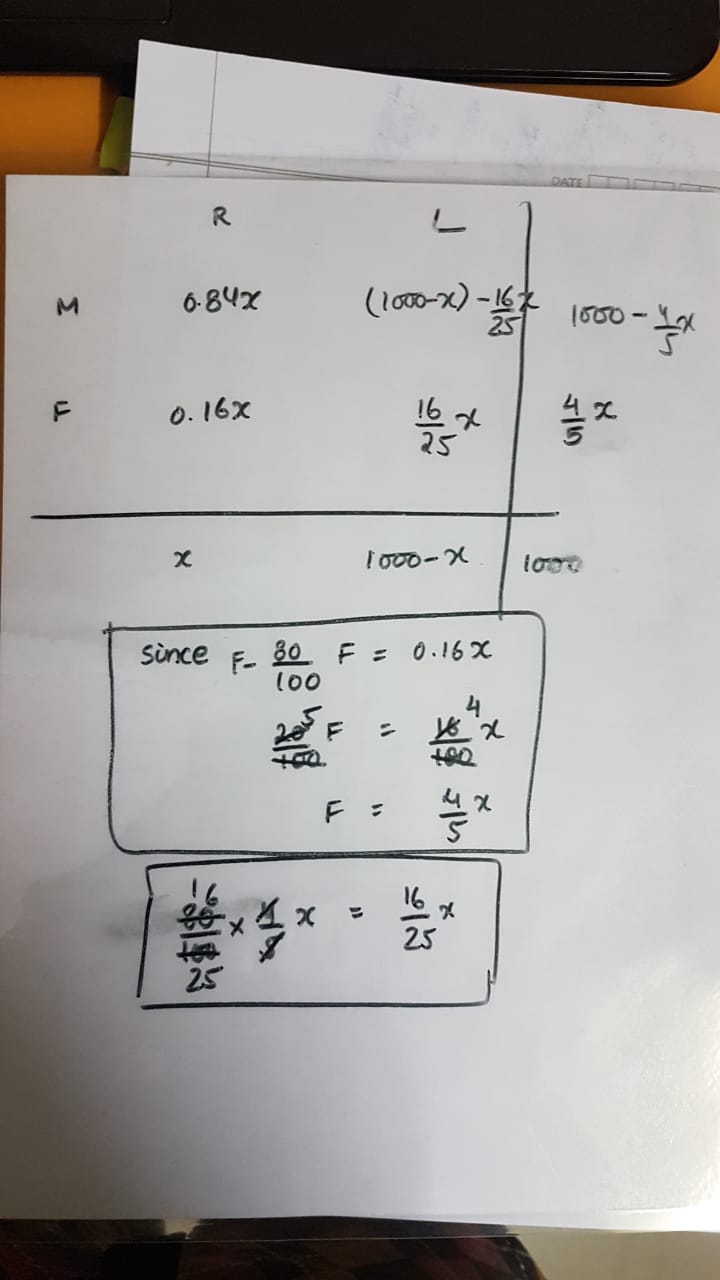 DATE
R L
M 0.84x (1000-x) - 16/25 x 1000 - 4/5 x
F 0.16x 16/25 x 4/5 x
x 1000-x 1000
since F- 80/100 F = 0.16x
20/100 5 F = 16/100 4 x
F = 4/5 x
16 80/100 25 × 4/5 x = 16/25 x